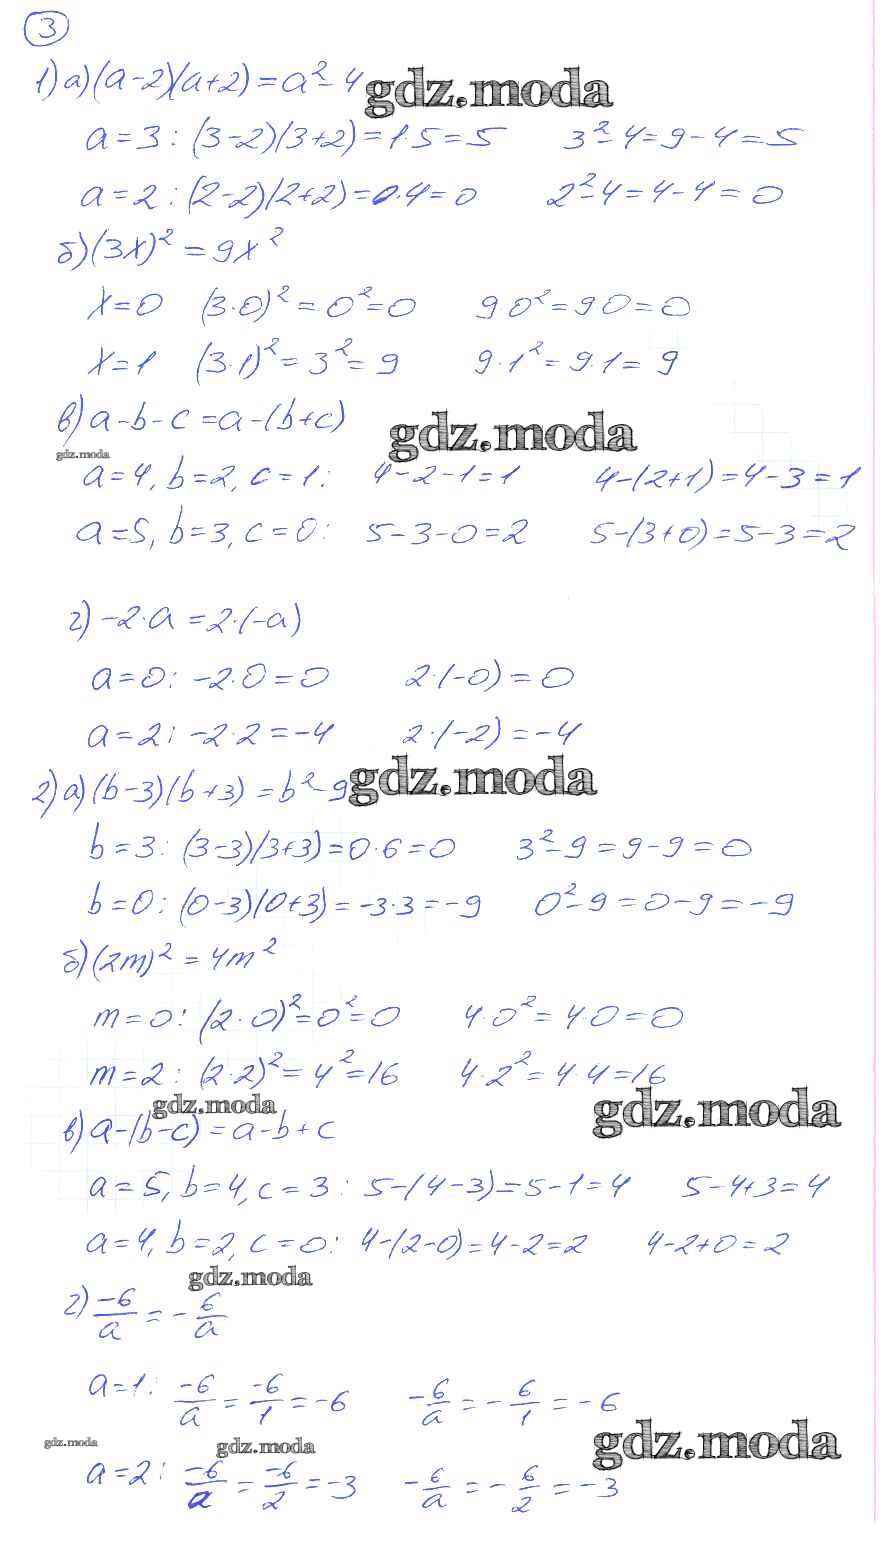 3
1) а) (a-2)(a+2) = a²-4 gdz.moda
a=3: (3-2)(3+2)=1·5=5 3²-4=9-4=5
a=2: (2-2)(2+2)=0·4=0 2²-4=4-4=0
б) (3x)² = 9x²
x=0 (3·0)²=0²=0 9 0²=9 0=0
x=1 (3·1)²=3²=9 9·1²=9·1=9
в) a-b-c=a-(b+c) gdz.moda
gdz.moda
a=4, b=2, c=1: 4-2-1=1 4-(2+1)=4-3=1
a=5, b=3, c=0: 5-3-0=2 5-(3+0)=5-3=2
г) -2·a=2·(-a)
a=0: -2·0=0 2·(-0)=0
a=2: -2·2=-4 2·(-2)=-4
2) а) (b-3)(b+3)=b²-9 gdz.moda
b=3: (3-3)(3+3)=0·6=0 3²-9=9-9=0
b=0: (0-3)(0+3)=-3·3=-9 0²-9=0-9=-9
б) (2m)²=4m²
m=0: (2·0)²=0²=0 4·0²=4·0=0
m=2: (2·2)²=4²=16 4·2²=4·4=16
gdz.moda gdz.moda
в) a-(b-c)=a-b+c
a=5, b=4, c=3: 5-(4-3)=5-1=4 5-4+3=4
a=4, b=2, c=0: 4-(2-0)=4-2=2 4-2+0=2
gdz.moda
г) -6/a = -6/a
a=1: -6/a = -6/1 = -6 -6/a = -6/1 = -6
gdz.moda gdz.moda gdz.moda
a=2: -6/a = -6/2 = -3 -6/a = -6/2 = -3